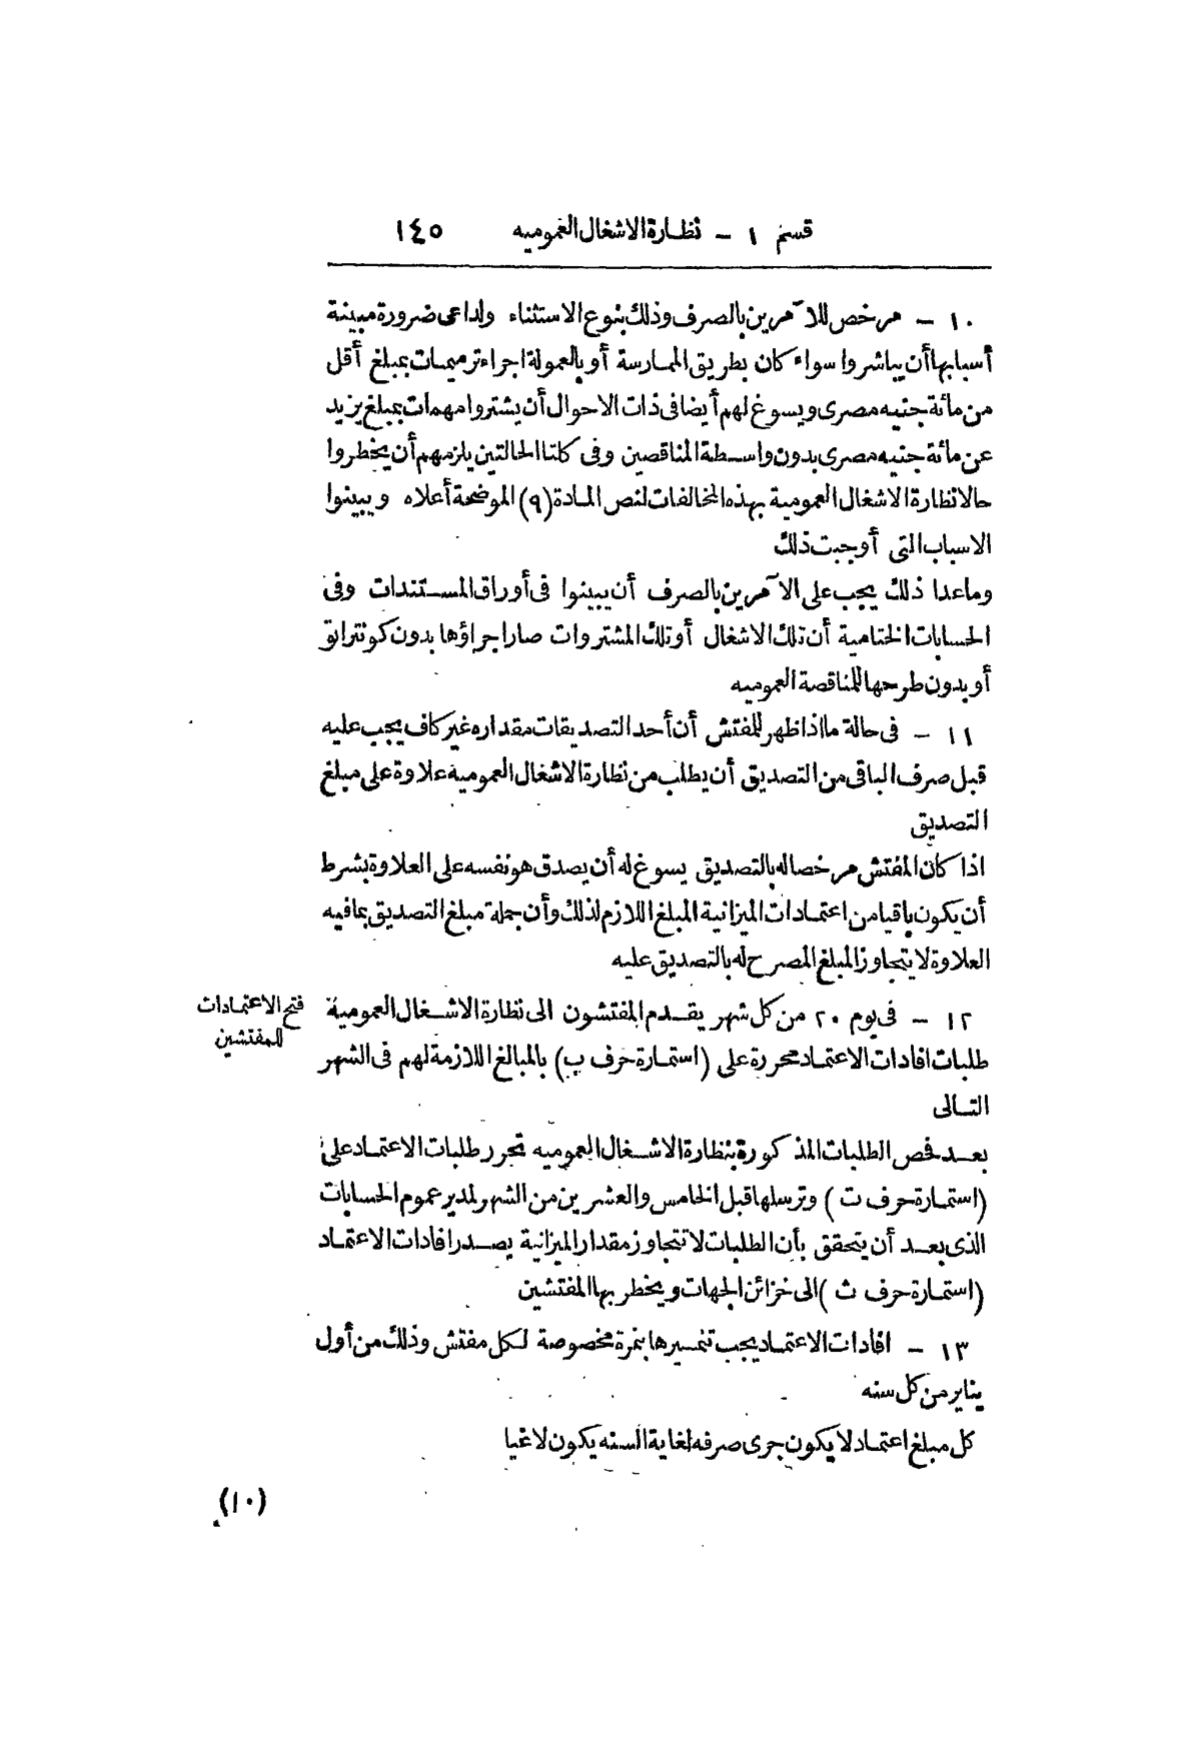 قسم ١ - نظارة الاشغال العموميه ١٤٥
١٠ - مرخص للآمرين بالصرف وذلك بنوع الاستثناء ولداعى ضرورة مبينة
أسبابها أن يباشروا سواء كان بطريق الممارسة أو بالعمولة اجراء ترميمات بمبلغ أقل
من مائة جنيه مصرى ويسوغ لهم أيضا فى ذات الاحوال أن يشتروا مهمات بمبلغ يزيد
عن مائة جنيه مصرى بدون واسطة المناقصين وفى كلتا الحالتين يلزمهم أن يخطروا
حالا نظارة الاشغال العمومية بهذه المخالفات لنص المادة (٩) الموضحة أعلاه ويبينوا
الاسباب التى أوجبت ذلك
وماعدا ذلك يجب على الآمرين بالصرف أن يبينوا فى أوراق المستندات وفى
الحسابات الختامية أن تلك الاشغال أو تلك المشتروات صار اجراؤها بدون كونتراتو
أو بدون طرحها للمناقصة العموميه
١١ - فى حالة ما اذا ظهر للمفتش أن أحد التصديقات مقداره غير كاف يجب عليه
قبل صرف الباقى من التصديق أن يطلب من نظارة الاشغال العمومية علاوة على مبلغ
التصديق
اذا كان المفتش مرخصا له بالتصديق يسوغ له أن يصدق هو نفسه على العلاوة بشرط
أن يكون باقيا من اعتمادات الميزانية المبلغ اللازم لذلك وأن جملة مبلغ التصديق بما فيه
العلاوة لا يتجاوز المبلغ المصرح له بالتصديق عليه
فتح الاعتمادات
للمفتشين
١٢ - فى يوم ٢٠ من كل شهر يقدم المفتشون الى نظارة الاشغال العمومية
طلبات افادات الاعتماد محررة على (استمارة حرف ب) بالمبالغ اللازمة لهم فى الشهر
التالى
بعد فحص الطلبات المذكورة بنظارة الاشغال العموميه تحرر طلبات الاعتماد على
(استمارة حرف ت) وترسلها قبل الخامس والعشرين من الشهر لمدير عموم الحسابات
الذى بعد أن يتحقق بأن الطلبات لا تتجاوز مقدار الميزانية يصدر افادات الاعتماد
(استمارة حرف ث) الى خزائن الجهات ويخطر بها المفتشين
١٣ - افادات الاعتماد يجب تنميرها بنمرة مخصوصة لكل مفتش وذلك من أول
يناير من كل سنه
كل مبلغ اعتماد لا يكون جرى صرفه لغاية السنه يكون لاغيا
(١٠)